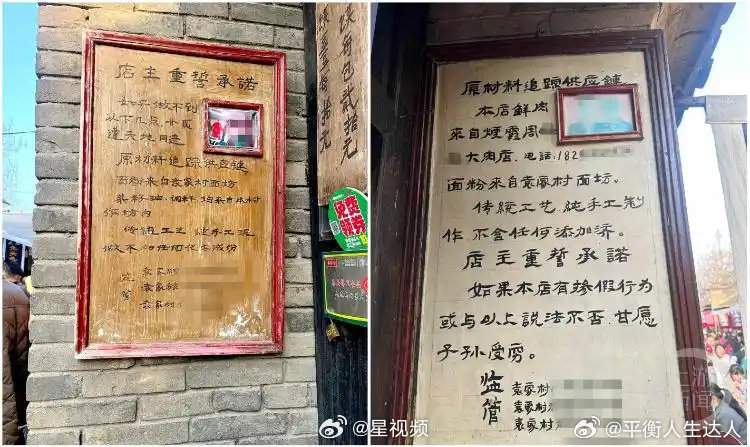 店主重誓承諾
如果做不到
以下几点，甘愿
遭天地日追
原材料追踪供应鏈
面粉来自袁家村面坊
菜籽油、調料，均来自本村
作坊内
传統工艺 純手工泥
做 不加任何化学成份
監管
袁家村
袁家村
袁家村
包貳拾元
拾元
原材料追踪供应鏈
本店鮮肉
来自烟霞周
大肉店，电話：182
面粉来自袁家村面坊。
传統工艺 純手工制
作，不含任何添加济。
店主重誓承諾
如果本店有摻假行为
或与以上說法不否，甘愿
子孙受穷。
监管
袁家村
袁家村
袁家村
@星视频
@平衡人生达人